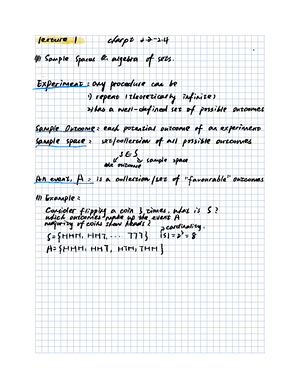 lecture 1 chapt 2.2-2.4
# Sample Spaces & algebra of sets.
Experiment: any procedure can be
1) repeat (theoretically infinite)
2) has a well-defined set of possible outcomes
Sample Outcome: each potential outcome of an experiment
Sample space: set/collection of all possible outcomes
s ∈ S
one outcome sample space
An event, A: is a collection/set of "favourable" outcomes
Example:
Consider flipping a coin 3 times. what is S?
which outcomes make up the event A
majority of coins show heads?
cardinality.
S={HHH, HHT, ... TTT} |S| = 2³ = 8
A={HHH, HHT, HTH, THH}